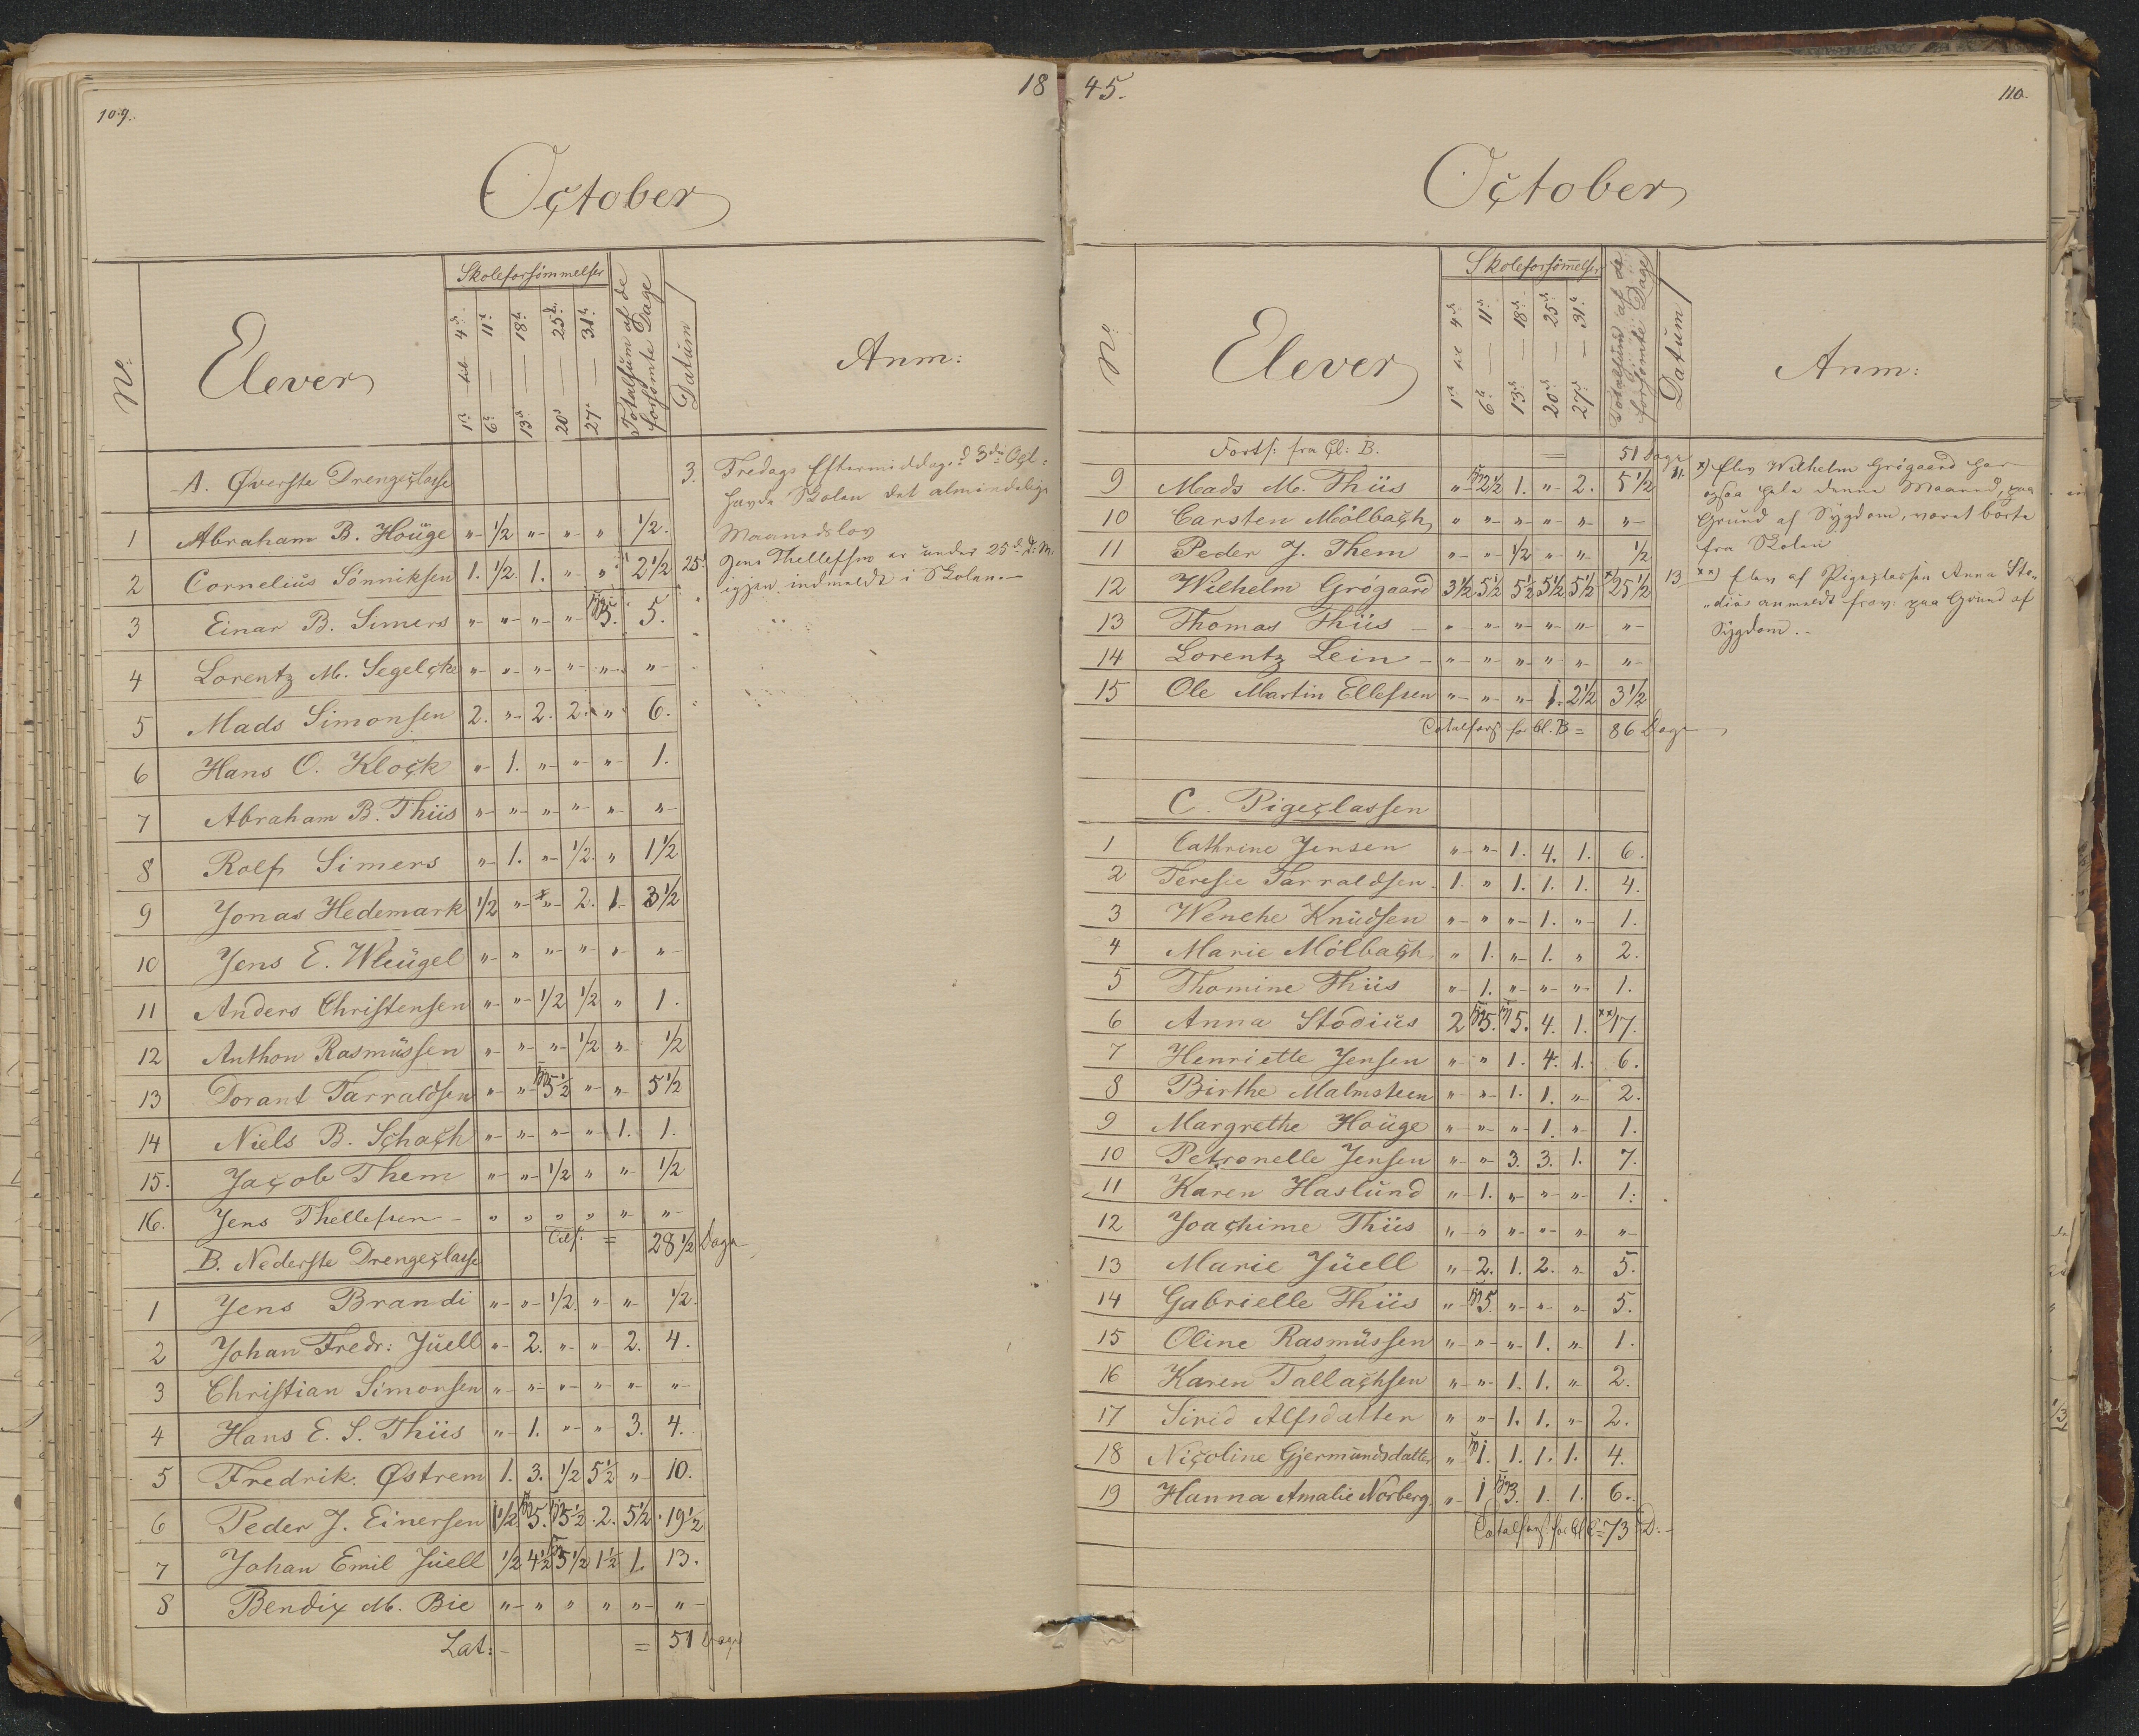 109.
18
October
No:
Elever
Skoleforsömmelser
1ste til 4de
6te — 11te
13de — 18de
20de — 25de
27de — 31te
Totalsum af de forsömte Dage
Datum
Anm:
A. Øverste Drengeclasse
3. Fredags Eftermiddag d 3die Oct:
havde Skolen det almindelige
Maanedslov
1 Abraham B. Houge „ 1/2 „ „ „ 1/2.
2 Cornelius Sönniksen 1. 1/2. 1. „ „ 2 1/2
25. Jens Thellefsen er under 25de d: M.
igjen indmeldt i Skolen.—
3 Einar B. Simers „ „ „ „ syg 5. 5.
4 Lorentz M. Segelcke „ „ „ „ „ „
5 Mads Simonsen 2. „ 2. 2. „ 6.
6 Hans O. Klock „ 1. „ „ „ 1.
7 Abraham B. Thiis „ „ „ „ „ „
8 Rolf Simers „ 1. „ 1/2. „ 1 1/2
9 Jonas Hedemark 1/2 „ „ 2. 1. 3 1/2
10 Jens E. Wleugel „ „ „ „ „ „
11 Anders Christensen „ „ 1/2 1/2 „ 1.
12 Anthon Rasmussen „ „ „ 1/2 „ 1/2
13 Dorant Tarraldsen „ „ syg 5 1/2 „ „ 5 1/2
14 Niels B. Schach „ „ „ „ 1. 1.
15. Jacob Them „ „ 1/2 „ „ 1/2
16. Jens Thellefsen „ „ „ „ „ „
Tils: = 28 1/2 Dage
B. Nederste Drengeclasse
1 Jens Brandi „ „ 1/2. „ „ 1/2.
2 Johan Fredr: Juell „ 2. „ „ 2. 4.
3 Christian Simonsen „ „ „ „ „ „
4 Hans E. S. Thiis „ 1. „ „ 3. 4.
5 Fredrik Østrem 1. 3. 1/2 5 1/2 „ 10.
6 Peder J. Einersen 1 1/2 syg 5. syg 5 1/2 2. 5 1/2 19 1/2
7 Johan Emil Juell 1/2 4 1/2 syg 5 1/2 1 1/2 1. 13.
8 Bendix M. Bie „ „ „ „ „ „
Lat: = 51 Dage
45.
110.
October
No:
Elever
Skoleforsömelser
1ste til 4de
6te — 11te
13de — 18de
20de — 25de
27de — 31te
Totalsum af de forsömte Dage
Datum
Anm:
Forts: fra Cl: B. = 51 Dage
9 Mads M. Thiis „ syg 2 1/2 1. „ 2. 5 1/2
11. x) Elev Wilhelm Grögaard har
ogsaa hele denne Maaned, paa
Grund af Sygdom, været borte
fra Skolen
10 Carsten Mölbach „ „ „ „ „ „
11 Peder J. Them „ „ 1/2 „ „ 1/2
12 Wilhelm Grögaard 3 1/2 5 1/2 5 1/2 5 1/2 5 1/2 x) 25 1/2
13 xx) Elev af Pigeclassen Anna Sto„
„dius anmeldt frav: paa Grund af
Sygdom.—
13 Thomas Thiis „ „ „ „ „ „
14 Lorentz Lein „ „ „ „ „ „
15 Ole Martin Ellefsen „ „ „ 1. 2 1/2 3 1/2
Totalfors for Cl. B = 86 Dage
C. Pigeclassen
1 Cathrine Jensen „ „ 1. 4. 1. 6.
2 Terese Tarraldsen 1. „ 1. 1. 1. 4.
3 Wenche Knudsen „ „ „ 1. „ 1.
4 Marie Mölbach „ 1. „ 1. „ 2.
5 Thomine Thiis „ 1. „ „ „ 1.
6 Anna Stodius 2 syg 5. syg 5. 4. 1. xx) 17.
7 Henriette Jensen „ „ 1. 4. 1. 6.
8 Birthe Malmsteen „ „ 1. 1. „ 2.
9 Margrethe Houge „ „ „ 1. „ 1.
10 Petronelle Jensen „ „ 3. 3. 1. 7.
11 Karen Haslund „ 1. „ „ „ 1.
12 Joachime Thiis „ „ „ „ „ „
13 Marie Juell „ 2. 1. 2. „ 5.
14 Gabrielle Thiis „ syg 5. „ „ „ 5.
15 Oline Rasmussen „ „ „ 1. „ 1.
16 Karen Tallachsen „ „ 1. 1. „ 2.
17 Sirid Alfsdatter „ „ 1. 1. „ 2.
18 Nicoline Gjermundsdatter „ syg 1. 1. 1. 1. 4.
19 Hanna Amalie Norberg „ 1 syg 3. 1. 1. 6.
Totalfors for Cl C = 73 D:—